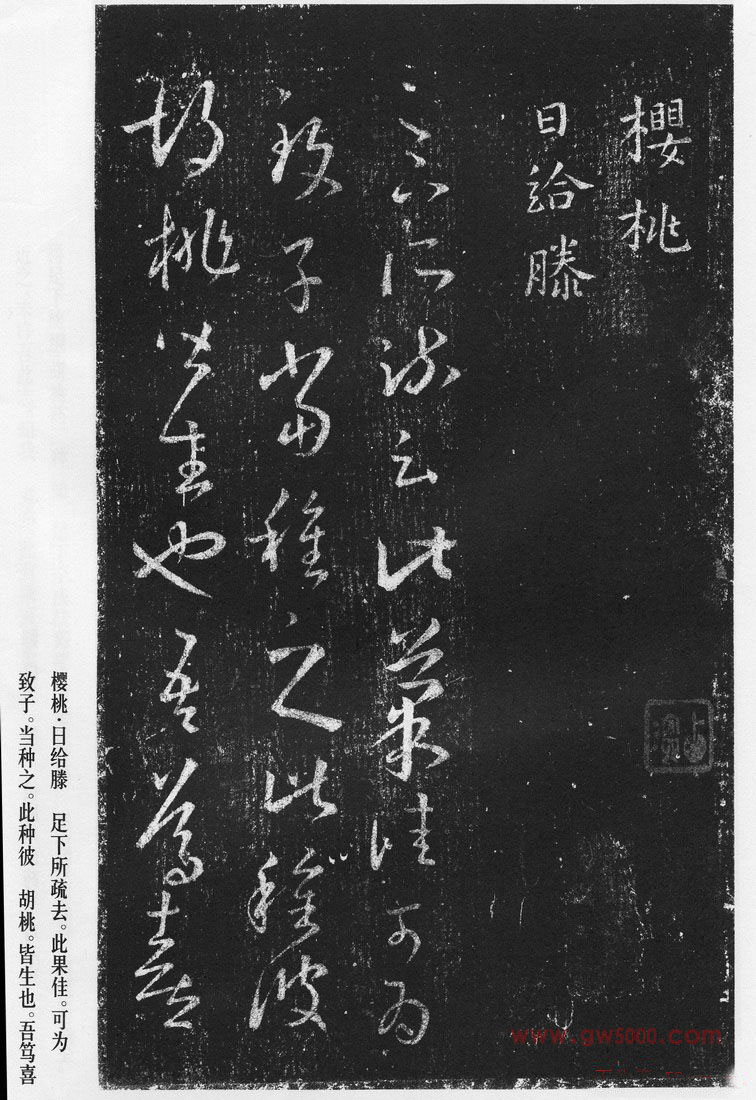 櫻桃
日給滕
足下所疏云此菓佳可為
致子當種之此種彼
胡桃皆生也吾篤喜
樱桃·日给滕　足下所疏去。此果佳。可为
致子。当种之。此种彼　胡桃。皆生也。吾笃喜
www.gw5000.com